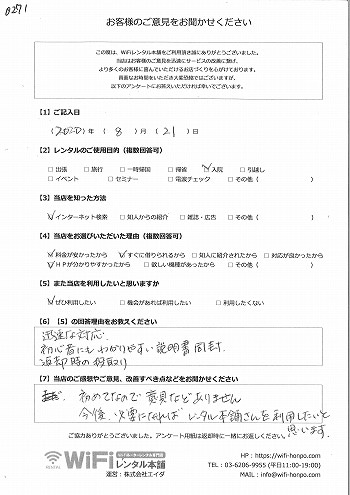 お客様のご意見をお聞かせください
この度は、WiFiレンタル本舗をご利用頂き誠にありがとうございました。
当店はお客様のご意見を迅速にサービスの改善に繋げ、
より多くのお客様に喜んでいただけるお店づくりを心がけております。
貴重なお時間をいただき大変恐縮ではございますが、
以下のアンケートにお答えいただければ幸いでございます。
【1】ご記入日
(2020)年 (8)月 (21)日
【2】レンタルのご使用目的（複数回答可）
□出張 □旅行 □一時帰国 □帰省 ☑入院 □引越し
□イベント □セミナー □電波チェック □その他（ ）
【3】当店を知った方法
☑インターネット検索 □知人からの紹介 □雑誌・広告 □その他（ ）
【4】当店をお選びいただいた理由（複数回答可）
☑料金が安かったから ☑すぐに借りられるから □知人に紹介されたから □対応が良かったから
☑HPが分かりやすかったから □欲しい機種があったから □その他（ ）
【5】また当店を利用したいと思いますか
☑ぜひ利用したい □機会があれば利用したい □利用したくない
【6】【5】の回答理由をお教えください
迅速な対応
初心者にもわかりやすい説明書同封
返却時の段取り
【7】当店のご感想やご意見、改善すべき点などをお聞かせください
初めてなので意見などありません
今後、必要になればレンタル本舗さんを利用したいと
思います。
ご協力ありがとうございました。アンケート用紙は返却時に一緒にお送しください。
WiFiルーターレンタル専門店
WiFi
レンタル本舗
運営：株式会社エイダ
HP：https://wifi-honpo.com
TEL：03-6206-9955 (平日11:00~19:00)
MAIL：info@wifi-honpo.com